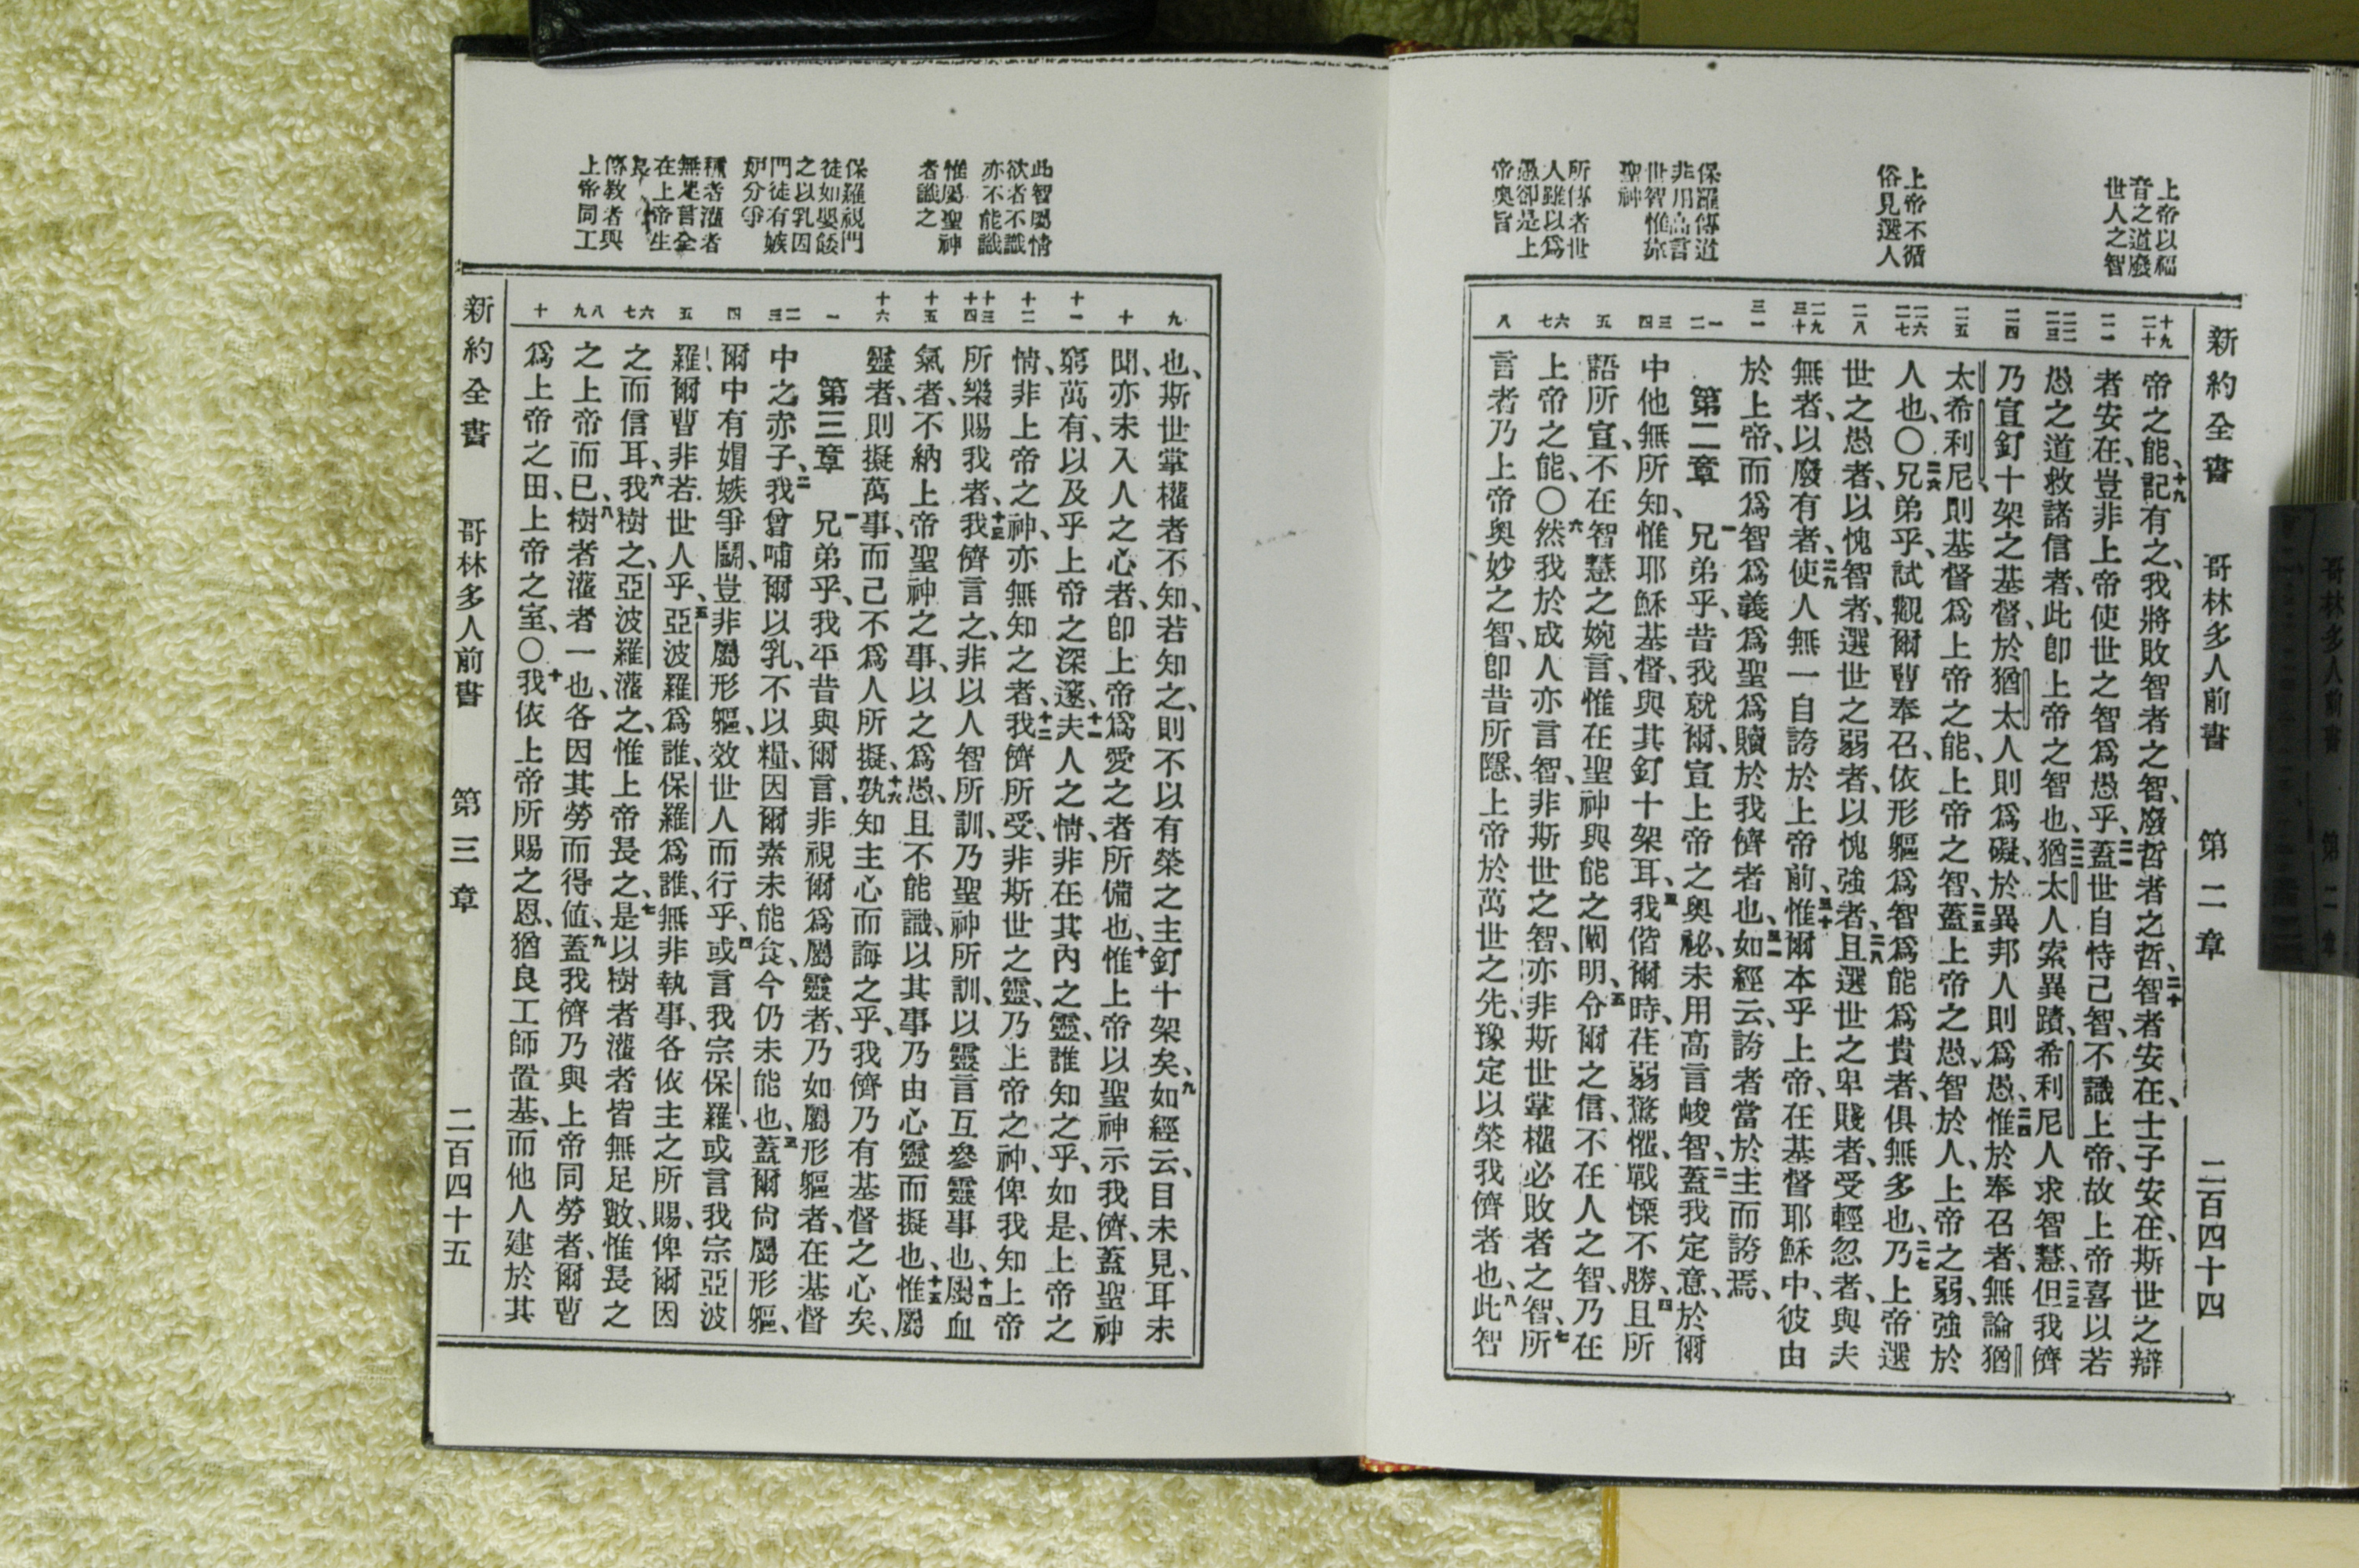 上帝以福
音之道廢
世人之智
上帝不循
俗見選人
保羅傳道
非用高言
世智惟脉
聖神
所傳者世
人雖以爲
愚卻是上
帝奧旨
新約全書 哥林多人前書 第二章 二百四十四
十九
二十
二一
二二
二三
二四
二五
二六
二七
二八
二九
三十
三一
一
二
三
四
五
六
七
八
帝之能、十九記有之、我將敗智者之智、廢哲者之哲、二十智者安在、士子安在、斯世之辯
者安在、豈非上帝使世之智爲愚乎、二一蓋世自恃己智、不識上帝、故上帝喜以若
愚之道救諸信者、此卽上帝之智也、二二猶太人索異蹟、希利尼人求智慧、二三但我儕
乃宣釘十架之基督、於猶太人則爲礙、於異邦人則爲愚、二四惟於奉召者、無論猶
太希利尼、則基督爲上帝之能、上帝之智、二五蓋上帝之愚、智於人、上帝之弱、強於
人也、○二六兄弟乎、試觀爾曹奉召、依形軀爲智爲能爲貴者、俱無多也、二七乃上帝選
世之愚者、以愧智者、選世之弱者、以愧強者、二八且選世之卑賤者、受輕忽者、與夫
無者、以廢有者、二九使人無一自誇於上帝前、三十惟爾本乎上帝、在基督耶穌中、彼由
於上帝、而爲智爲義爲聖爲贖於我儕者也、三一如經云、誇者當於主而誇焉、
第二章 一兄弟乎、昔我就爾、宣上帝之奧祕、未用高言峻智、二蓋我定意、於爾
中他無所知、惟耶穌基督、與其釘十架耳、三我偕爾時、荏弱驚懼、戰慄不勝、四且所
語所宣、不在智慧之婉言、惟在聖神與能之闡明、五令爾之信、不在人之智、乃在
上帝之能、○六然我於成人亦言智、非斯世之智、亦非斯世掌權必敗者之智、七所
言者乃上帝奧妙之智、卽昔所隱、上帝於萬世之先、豫定以榮我儕者也、八此智
此智屬情
欲者不識
亦不能識
惟屬聖神
者識之
保羅視門
徒如嬰餧
之以乳因
門徒有嫉
妒分爭
種者灌者
無足言全
在上帝生
長
傳教者與
上帝同工
九
十
十一
十二
十三
十四
十五
十六
一
二
三
四
五
六
七
八
九
十
也、斯世掌權者不知、若知之、則不以有榮之主釘十架矣、九如經云、目未見、耳未
聞、亦未入人之心者、卽上帝爲愛之者所備也、十惟上帝以聖神示我儕、蓋聖神
窮萬有、以及乎上帝之深邃、十一夫人之情、非在其內之靈、誰知之乎、如是、上帝之
情、非上帝之神、亦無知之者、十二我儕所受、非斯世之靈、乃上帝之神、俾我知上帝
所樂賜我者、十三我儕言之、非以人智所訓、乃聖神所訓、以靈言互參靈事也、十四屬血
氣者、不納上帝聖神之事、以之爲愚、且不能識、以其事乃由心靈而擬也、十五惟屬
靈者、則擬萬事、而己不爲人所擬、十六孰知主心而誨之乎、我儕乃有基督之心矣、
第三章 一兄弟乎、我平昔與爾言、非視爾爲屬靈者、乃如屬形軀者、在基督
中之赤子、二我曾哺爾以乳、不以糧、因爾素未能食、今仍未能也、三蓋爾尙屬形軀、
爾中有媢嫉爭鬭、豈非屬形軀、效世人而行乎、四或言我宗保羅、或言我宗亞波
羅、爾曹非若世人乎、五亞波羅爲誰、保羅爲誰、無非執事、各依主之所賜、俾爾因
之而信耳、六我樹之、亞波羅灌之、惟上帝長之、七是以樹者灌者皆無足數、惟長之
之上帝而已、八樹者灌者一也、各因其勞而得値、九蓋我儕乃與上帝同勞者、爾曹
爲上帝之田、上帝之室、○十我依上帝所賜之恩、猶良工師置基、而他人建於其
新約全書 哥林多人前書 第三章 二百四十五